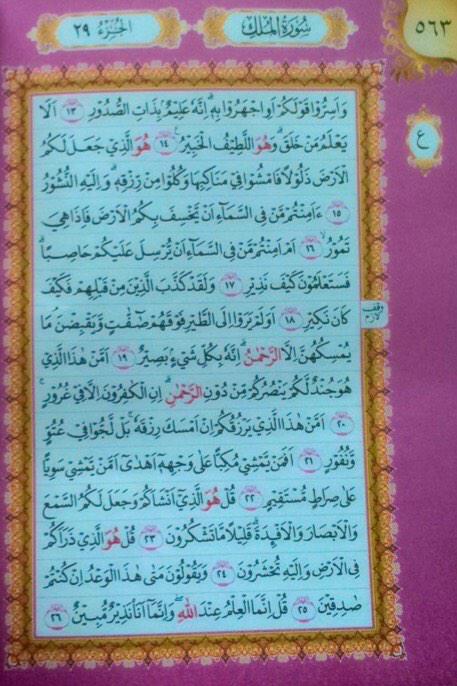 ٥٦٣
سُورَةُ الْمُلْكِ
الجُزْءُ ٢٩
وَاَسِرُّوْا قَوْلَكُمْ اَوِ اجْهَرُوْا بِهٖۗ اِنَّهٗ عَلِيْمٌۢ بِذَاتِ الصُّدُوْرِ ١٣ اَلَا
يَعْلَمُ مَنْ خَلَقَۗ وَهُوَ اللَّطِيْفُ الْخَبِيْرُ ࣖ ١٤ هُوَ الَّذِيْ جَعَلَ لَكُمُ
الْاَرْضَ ذَلُوْلًا فَامْشُوْا فِيْ مَنَاكِبِهَا وَكُلُوْا مِنْ رِّزْقِهٖۗ وَاِلَيْهِ النُّشُوْرُ
١٥ ءَاَمِنْتُمْ مَّنْ فِى السَّمَاۤءِ اَنْ يَّخْسِفَ بِكُمُ الْاَرْضَ فَاِذَا هِيَ
تَمُوْرُۙ ١٦ اَمْ اَمِنْتُمْ مَّنْ فِى السَّمَاۤءِ اَنْ يُّرْسِلَ عَلَيْكُمْ حَاصِبًاۗ
فَسَتَعْلَمُوْنَ كَيْفَ نَذِيْرِ ١٧ وَلَقَدْ كَذَّبَ الَّذِيْنَ مِنْ قَبْلِهِمْ فَكَيْفَ
كَانَ نَكِيْرِ ١٨ اَوَلَمْ يَرَوْا اِلَى الطَّيْرِ فَوْقَهُمْ صٰۤفّٰتٍ وَّيَقْبِضْنَۘ مَا
يُمْسِكُهُنَّ اِلَّا الرَّحْمٰنُۗ اِنَّهٗ بِكُلِّ شَيْءٍۢ بَصِيْرٌ ١٩ اَمَّنْ هٰذَا الَّذِيْ
هُوَ جُنْدٌ لَّكُمْ يَنْصُرُكُمْ مِّنْ دُوْنِ الرَّحْمٰنِۗ اِنِ الْكٰفِرُوْنَ اِلَّا فِيْ غُرُوْرٍۚ
٢٠ اَمَّنْ هٰذَا الَّذِيْ يَرْزُقُكُمْ اِنْ اَمْسَكَ رِزْقَهٗۚ بَلْ لَّجُّوْا فِيْ عُتُوٍّ
وَّنُفُوْرٍ ٢١ اَفَمَنْ يَّمْشِيْ مُكِبًّا عَلٰى وَجْهِهٖٓ اَهْدٰىٓ اَمَّنْ يَّمْشِيْ سَوِيًّا
عَلٰى صِرَاطٍ مُّسْتَقِيْمٍ ٢٢ قُلْ هُوَ الَّذِيْٓ اَنْشَاَكُمْ وَجَعَلَ لَكُمُ السَّمْعَ
وَالْاَبْصَارَ وَالْاَفْـِٕدَةَۗ قَلِيْلًا مَّا تَشْكُرُوْنَ ٢٣ قُلْ هُوَ الَّذِيْ ذَرَاَكُمْ
فِى الْاَرْضِ وَاِلَيْهِ تُحْشَرُوْنَ ٢٤ وَيَقُوْلُوْنَ مَتٰى هٰذَا الْوَعْدُ اِنْ كُنْتُمْ
صٰدِقِيْنَ ٢٥ قُلْ اِنَّمَا الْعِلْمُ عِنْدَ اللّٰهِۖ وَاِنَّمَآ اَنَا۠ نَذِيْرٌ مُّبِيْنٌ ٢٦
ع
وقف لازم